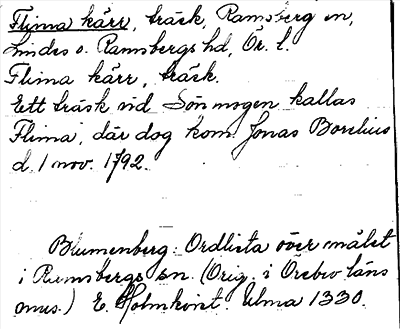 Flima kärr, träsk, Ramsberg sn,
Lindes o. Ramsbergs hd, Ör. l.
Flima kärr, träsk.
Ett träsk vid Sönmogen kallas
Flima, där dog kom. Jonas Borelius
d. 1 nov. 1792.
Blumenberg: Ordlista över målet
i Ramsbergs sn. (Orig. i Örebro läns
mus.) E. Holmkvist. Ulma 1330.